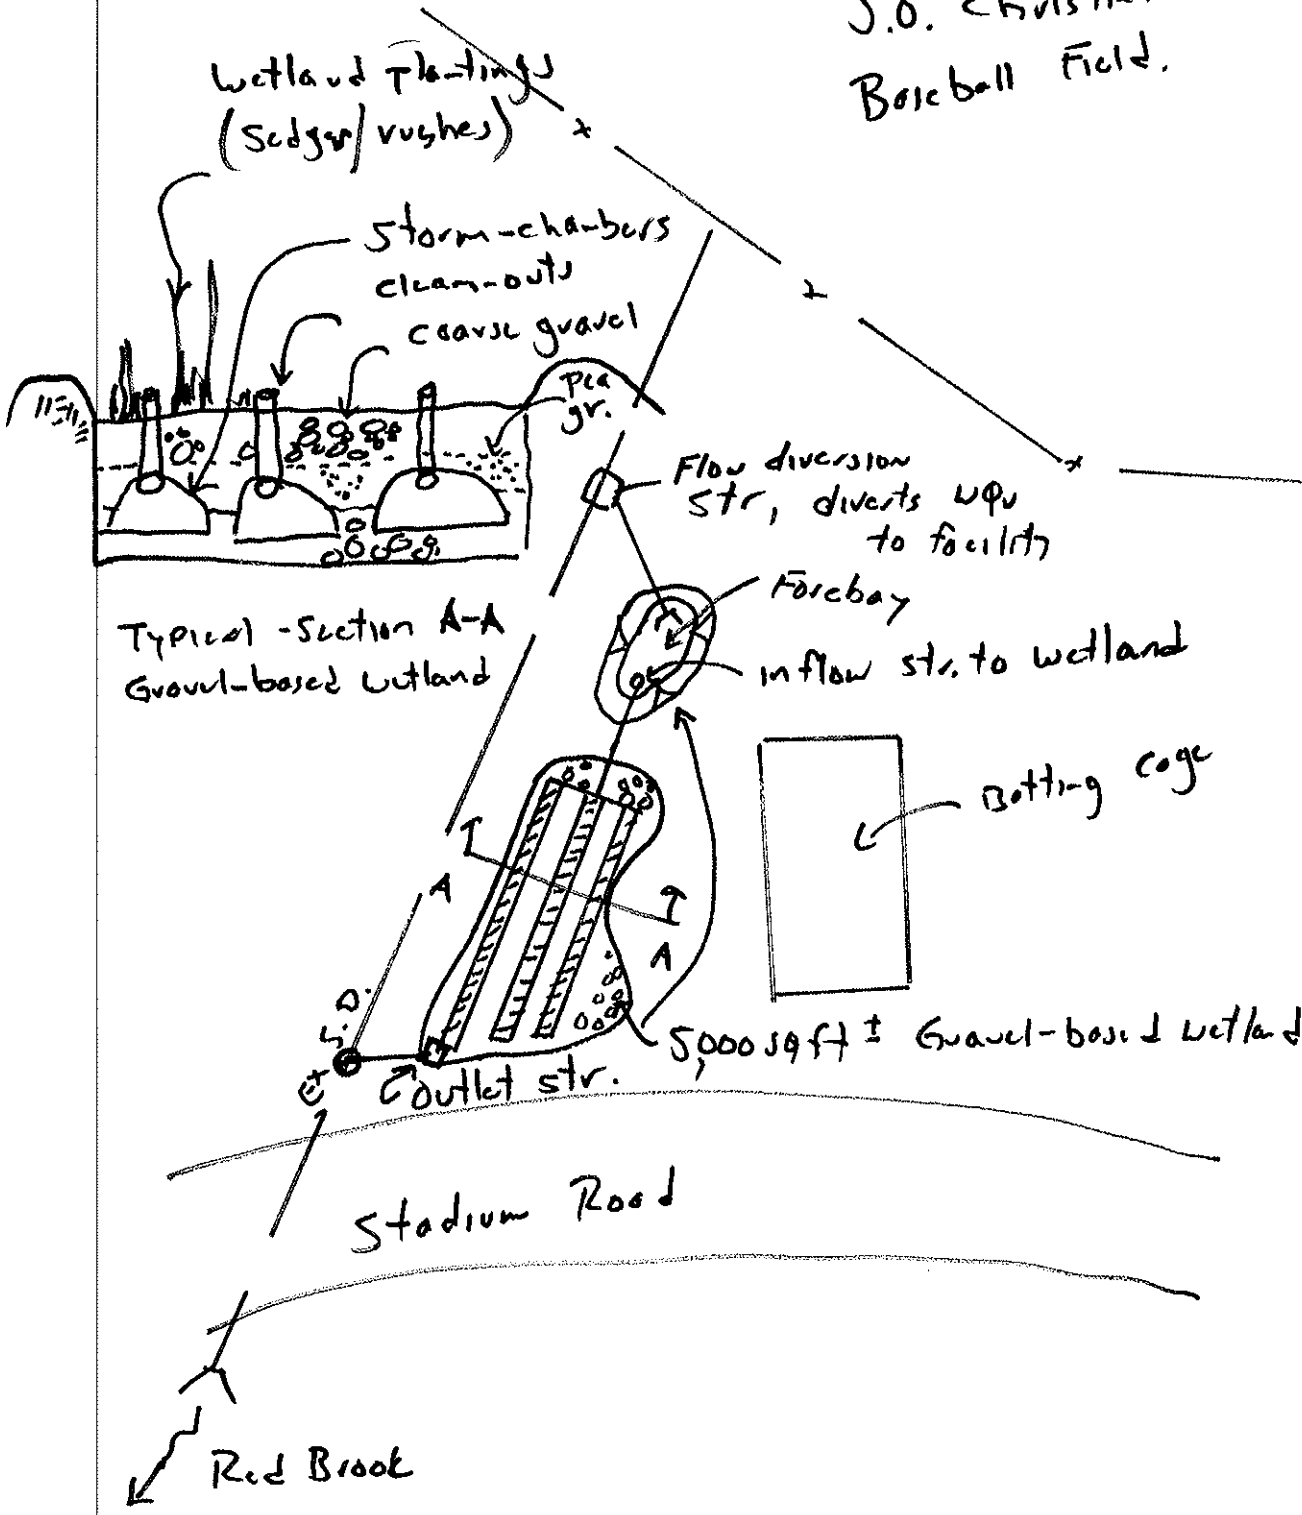 J.O.
Baseball Field.
Wetland Plantings
(Sedges/rushes)
Storm-chambers
clean-outs
coarse gravel
pea
gr.
Flow diversion
str, diverts WQv
to facility
Forebay
Typical-Section A-A
Gravel-based wetland
inflow str. to wetland
Batting cage
A
A
5,000 sq ft ± Gravel-based wetland
Ex S.D.
outlet str.
Stadium Road
Red Brook